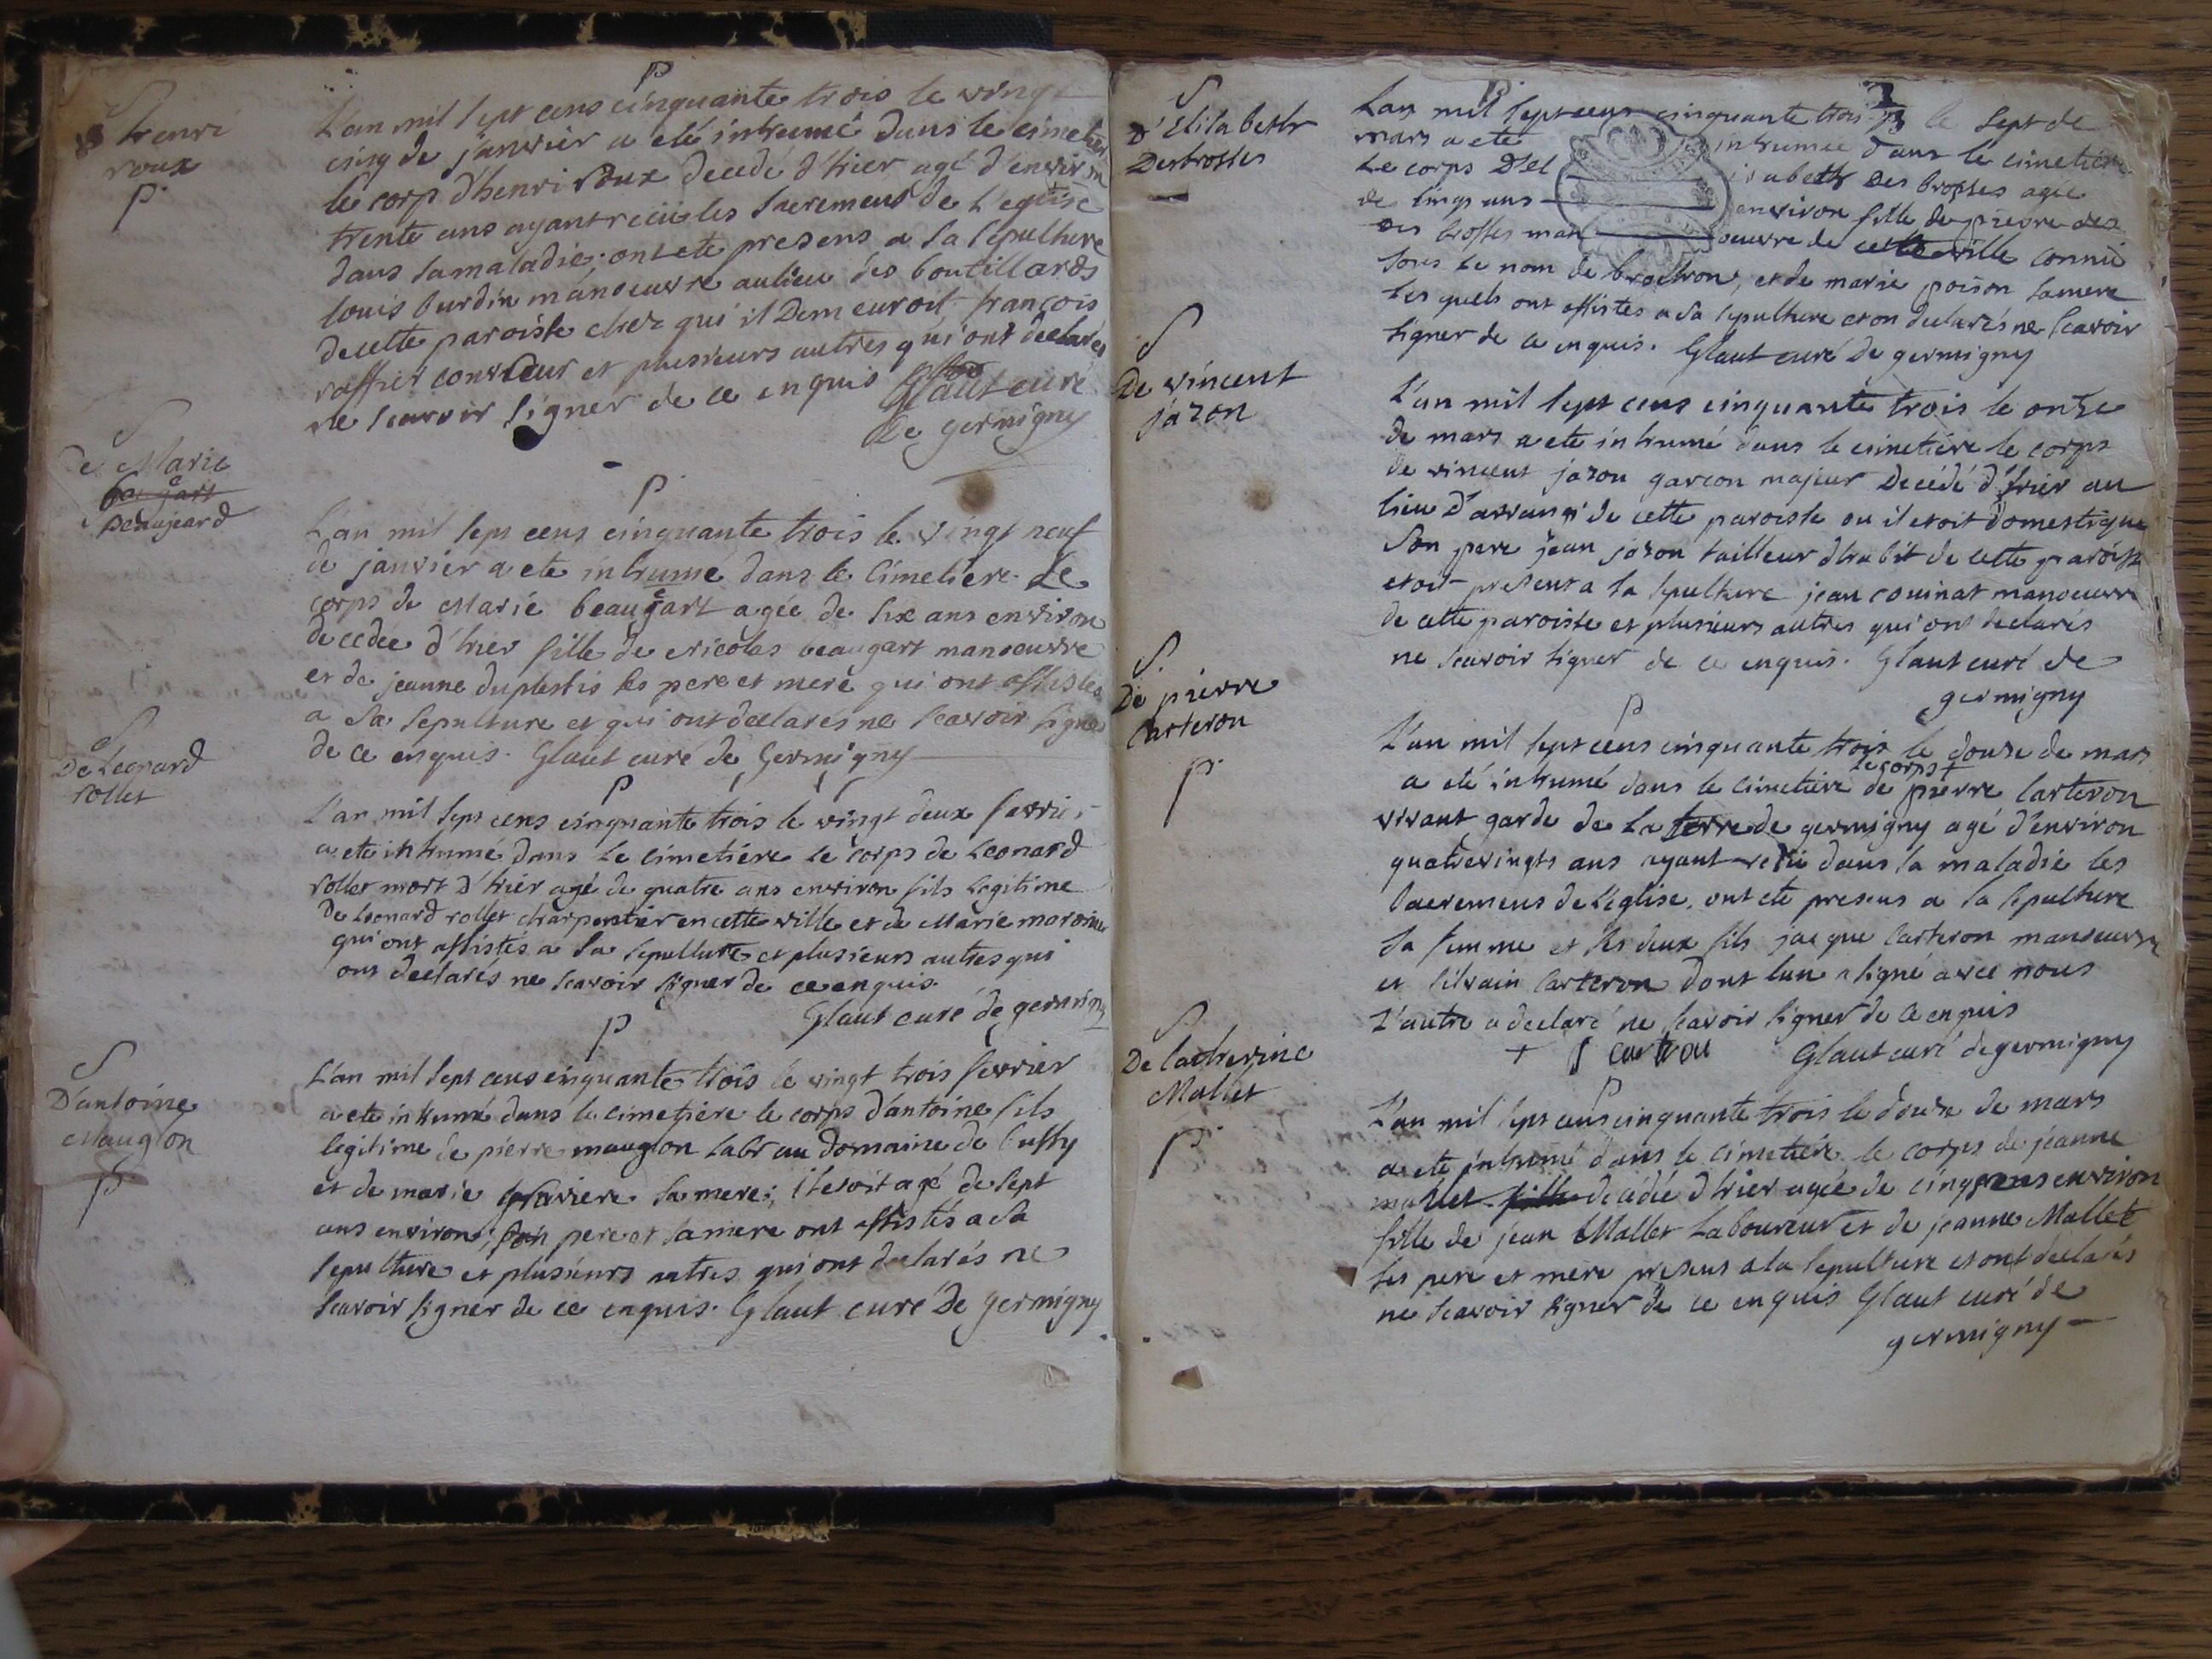 P
S
henri
roux
P.
L'an mil sept cens cinquante trois le vingt
cinq de janvier a eté inhumé dans le cimetier
le corp d'henri Roux decedé d'hier agé d'environ
trente ans ayant reciü les sacremens de l'eglise
dans sa maladie. ont ete presens a sa sepulture
louis burdin manoeuvre au lieu des boutillards
de cette paroisse chez qui il demeuroit françois
raffier couvreur et plusieurs autres qui ont declarés
ne scavoir signer de ce enquis Glaut curé
de germigny
S
de Marie
beaujeard
P
L'an mil sept cens cinquante trois le vingt neuf
de janvier a ete inhume dans le cimetiere Le
corps de Marie beaugeart agée de six ans environ
decedée d'hier fille de Nicolas beaugart manoeuvre
et de jeanne duplessis ses pere et mere qui ont assistés
a sa sepulture et qui ont declarés ne scavoir signer
de ce enquis. Glaut curé de Germigny
S
De Leonard
rollet
P
L'an mil sept cens cinquante trois le vingt deux fevrier
a ete inhumé dans le cimetiere le corps de Leonard
rollet mort d'hier agé de quatre ans environ fils legitime
de leonard rollet charpentier en cette ville et de Marie
qui ont assistés a sa sepulture et plusieurs autres qui
ont declarés ne scavoir signer de ce enquis
Glaut curé de germigny
P
S
D'antoine
Mauglon
P
L'an mil sept cens cinquante trois le vingt trois fevrier
a ete inhumé dans le cimetiere le corps d'antoine fils
legitime de pierre mauglon labr au domaine de bussy
et de marie sa mere; il etoit agé de sept
ans environ; son pere et sa mere ont assistés a sa
sepulture et plusieurs autres qui ont declarés ne
scavoir signer de ce enquis. Glaut curé De germigny
P.
2
S
D'Elisabeth
Desbrosses
Lan mil sept cens cinquante trois le sept de
mars a ete inhumee dans le cimetiere
Le corps D'elisabeth Des brosses agée
de cinq ans environ fille de pierre des
des brosses manoeuvre de cette ville connü
sous le nom de brochron, et de marie poison sa mere
les quels ont assistes a sa sepulture et on declarés ne scavoir
signer de ce enquis. Glaut curé de germigny
S
De vincent
jazon
L'an mil sept cens cinquante trois le onze
de mars a ete inhumé dans le cimetiére le corps
de vincent jazon garcon majeur decédé d'hier au
lieu d' de cette paroisse ou il etoit domestique
Son pere jean jazon tailleur d'habit de cette paroisse
etoit present a sa sepulture jean couinat manoeuvre
de cette paroisse et plusieurs autres qui ont declarés
ne scavoir signer de ce enquis. Glaut curé de
germigny
S.
De pierre
Carteron
P.
P
L'an mil sept cens cinquante trois le douze de mars
le corps +
a eté inhumé dans le cimetiere de pierre Carteron
vivant garde de la terre de germigny agé d'environ
quatrevingts ans ayant recü dans sa maladie les
sacremens de l'église. ont ete presens a sa sepulture
sa femme et ses deux fils jacque Carteron manoeuvre
et silvain Carteron dont l'un a signé avec nous
l'autre a declaré ne scavoir signer de ce enquis
+ S Glaut curé de germigny
S
De Catherine
Mallet
P.
P
L'an mil sept cens cinquante trois le douze de mars
a ete inhumé dans le cimetiére le corps de jeanne
mallet fille decédée d'hier agée de cinq ans environ
fille de jean Mallet Laboureur et de jeanne Mallet
ses pere et mere presens a la sepulture et ont declarés
ne scavoir signer de ce enquis Glaut curé de
germigny